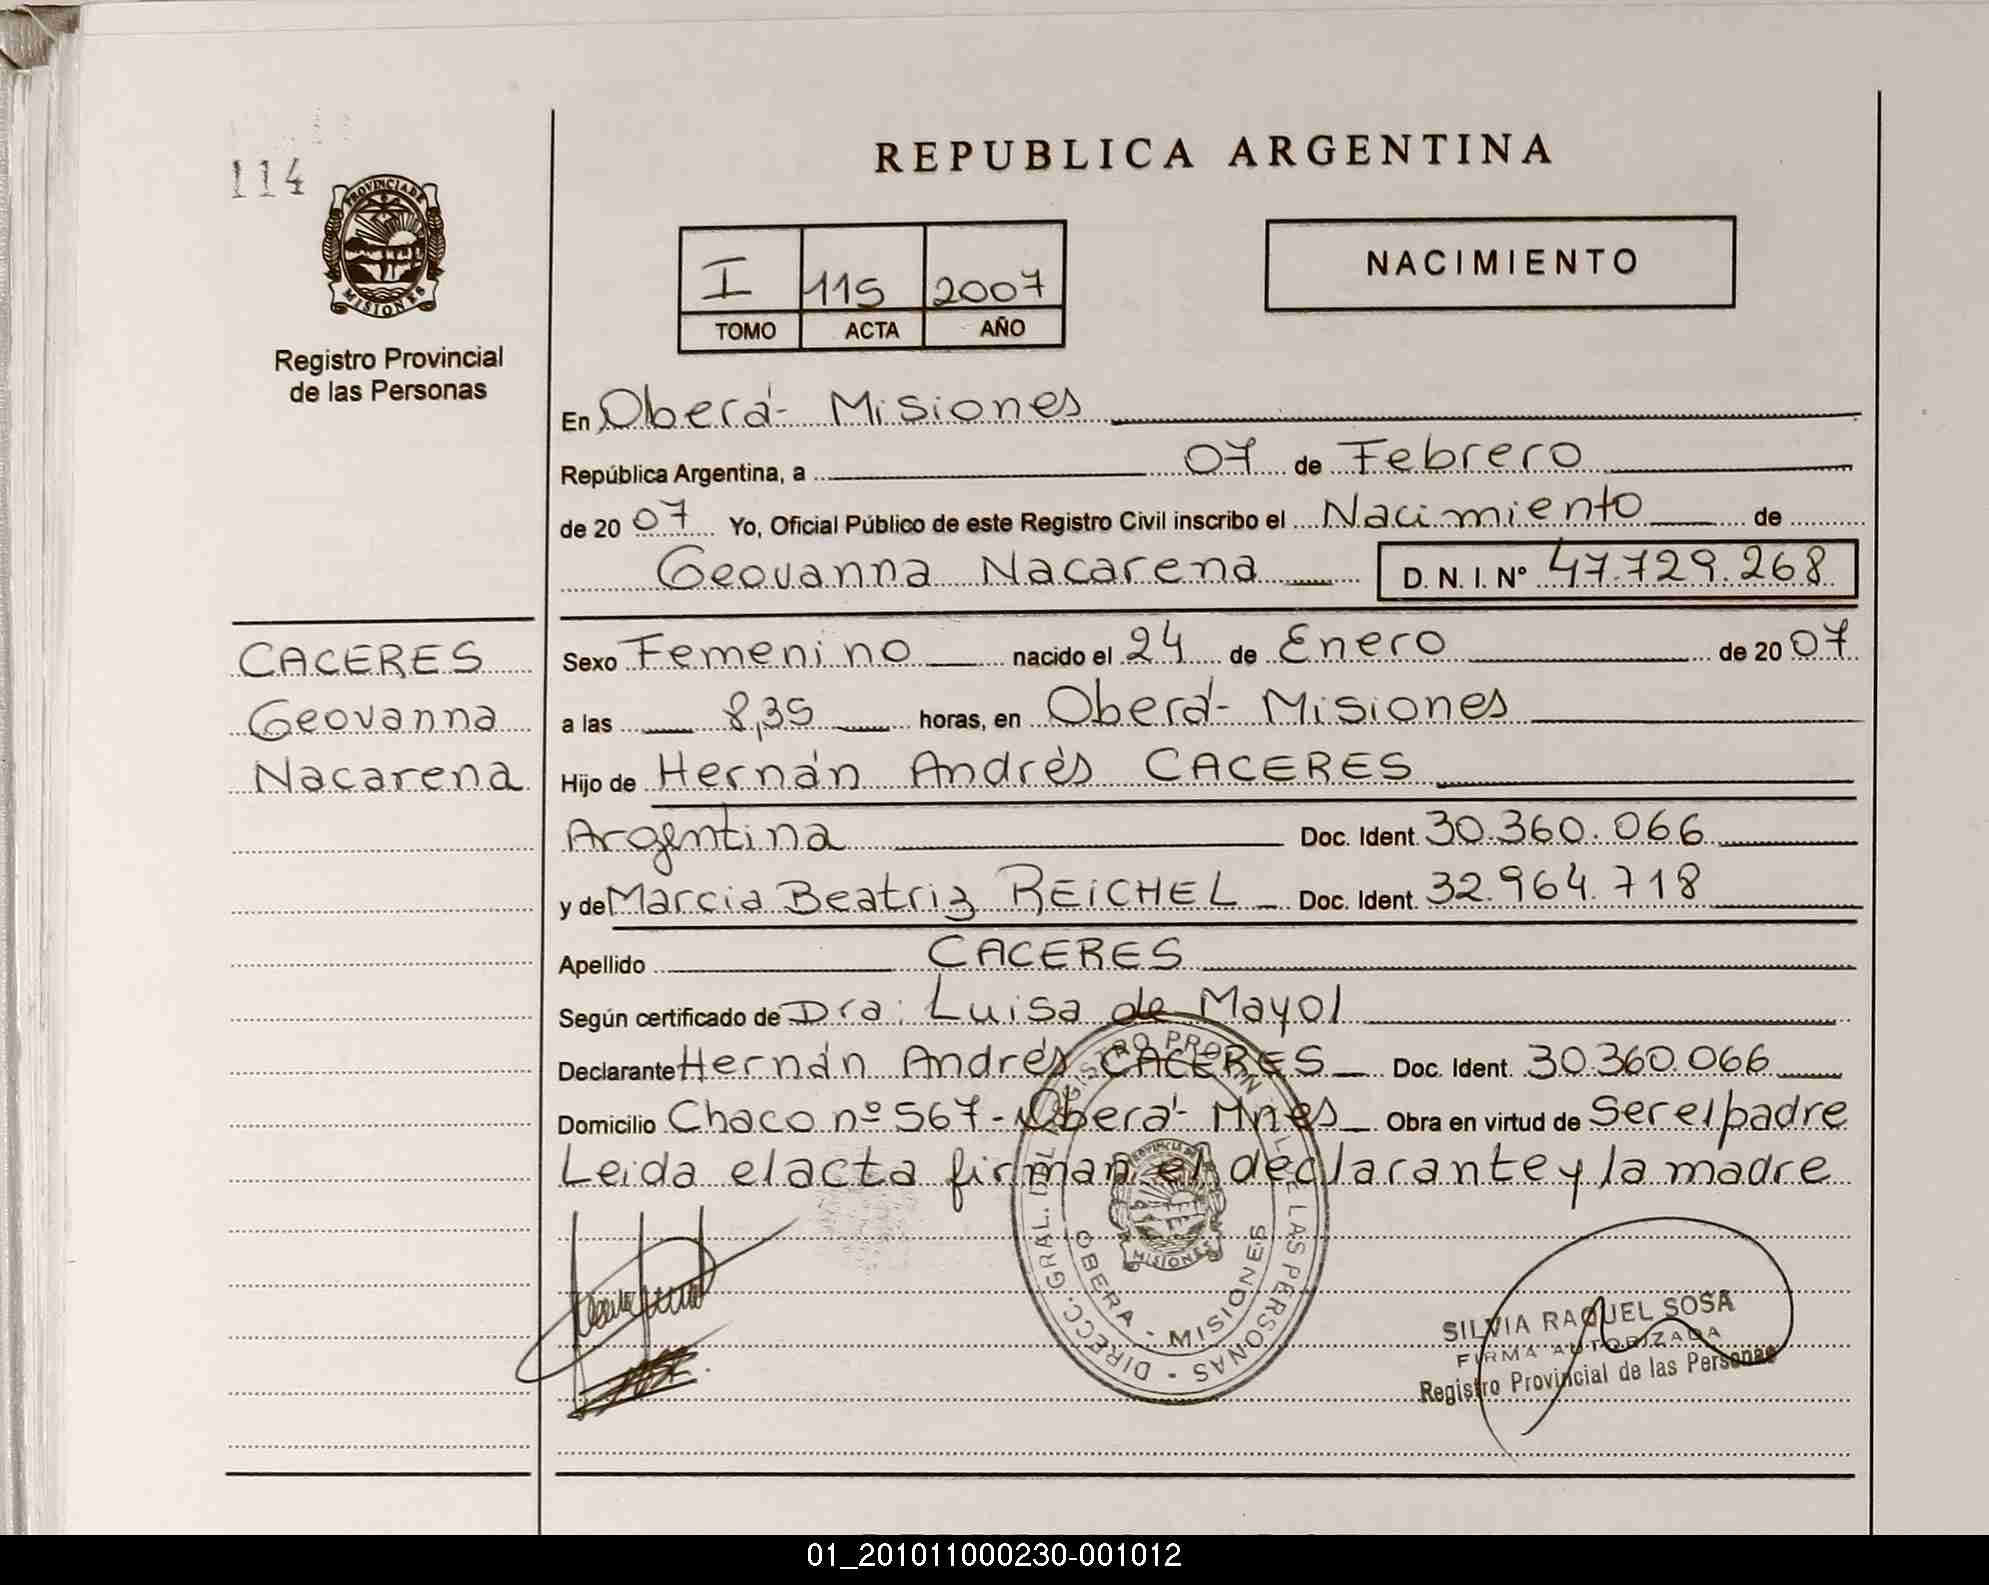 114
PROVINCIA DE
MISIONES
Registro Provincial
de las Personas
REPUBLICA ARGENTINA
I 115 2007
TOMO ACTA AÑO
NACIMIENTO
En Oberá - Misiones
República Argentina, a 07 de Febrero
de 2007 Yo, Oficial Público de este Registro Civil inscribo el Nacimiento de
Geovanna Nacarena D. N. I. Nº 47.729.268
CACERES
Geovanna
Nacarena
Sexo Femenino nacido el 24 de Enero de 2007
a las 8,35 horas, en Oberá - Misiones
Hijo de Hernán Andrés CACERES
Argentina Doc. Ident. 30.360.066
y de Marcia Beatriz REICHEL Doc. Ident. 32.964.718
Apellido CACERES
Según certificado de Dra: Luisa de Mayol
Declarante Hernán Andrés CACERES Doc. Ident. 30.360.066
Domicilio Chaco nº 567 - Oberá - Mnes Obra en virtud de Ser el padre
Leida el acta firman el declarante y la madre
DIRECC. GRAL. DEL REGISTRO PROVINCIAL DE LAS PERSONAS
PROVINCIA DE
MISIONES
OBERA - MISIONES
SILVIA RAQUEL SOSA
FIRMA AUTORIZADA
Registro Provincial de las Personas
01_201011000230-001012